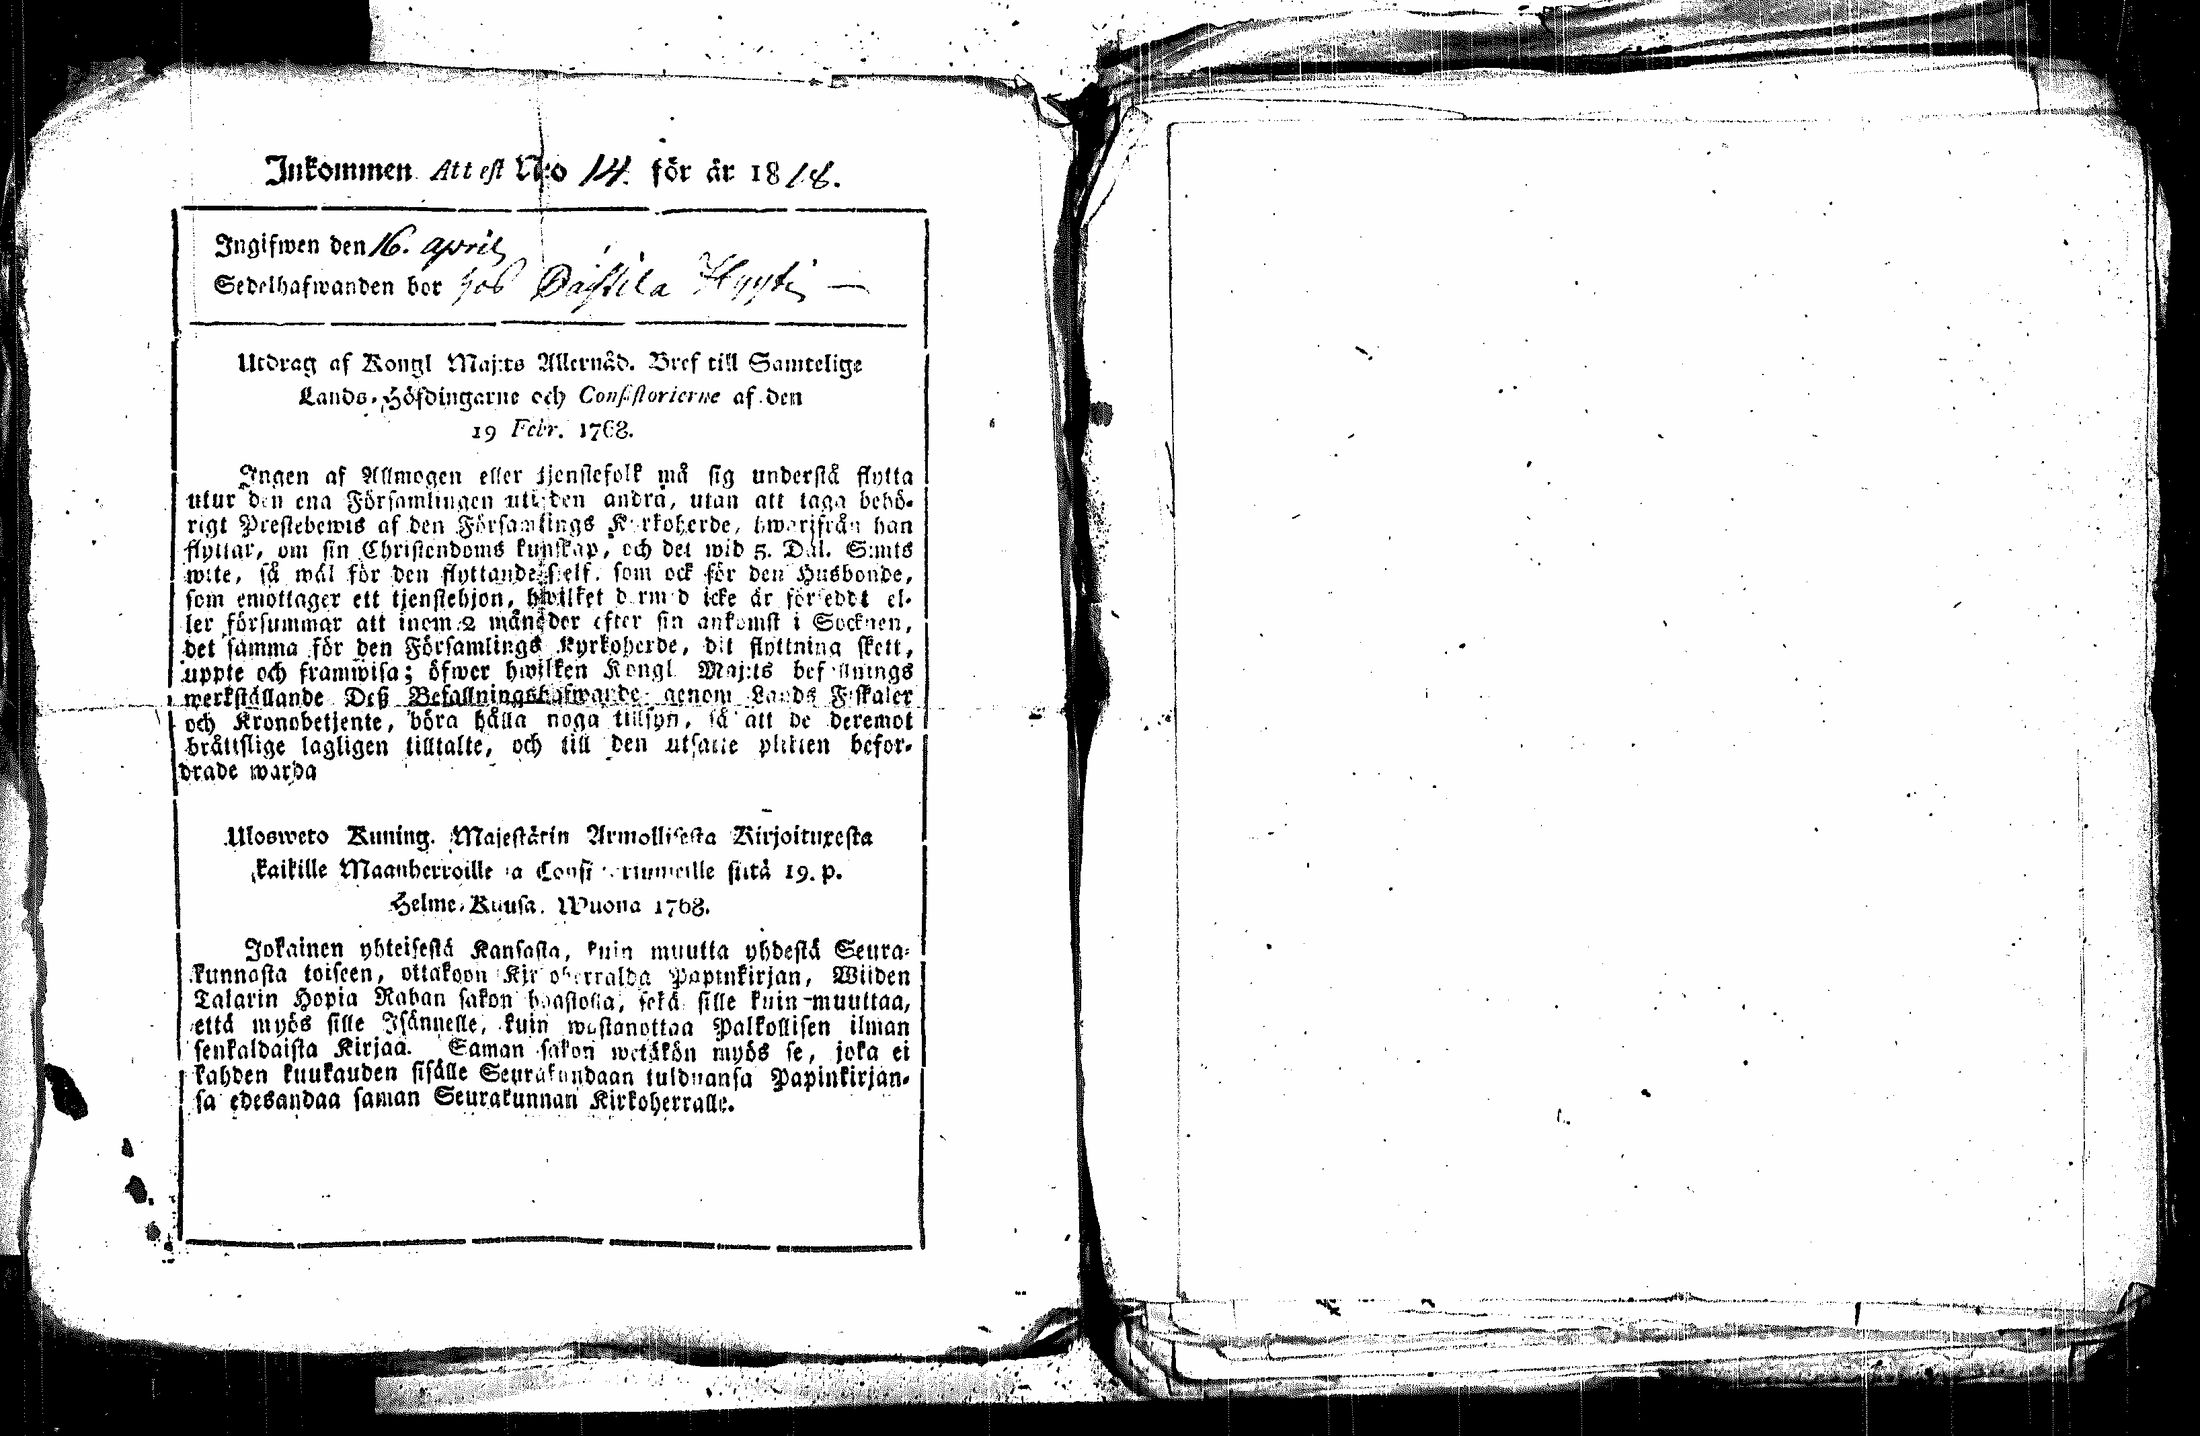 Inkommen Attest N:o 14. för år 1818.
Ingifwen den 16. april
Sedelhafwanden bor hos
Utdrag af Kongl Maj:ts Allernåd. Bref till Samtelige
Lands-Höfdingarne och Consistorierne af den
19 Febr. 1768.
Ingen af Allmogen eller tjenstefolk må sig understå flytta
utur den ena Församlingen uti den andra, utan att taga behö-
rigt Prestebewis af den Församlings Kyrkoherde, hwarifrån han
flyttar, om sin Christendoms kunskap, och det wid 5. Dal. S:mts
wite, så wäl för den flyttande sjelf, som ock för den Husbonde,
som emottager ett tjenstehjon, hwilket dermed icke är försedt el-
ler försummar att inom 2 månader efter sin ankomst i Socknen,
det samma för den Församlings Kyrkoherde, dit flyttning skett,
uppte och framwisa; öfwer hwilken Kongl Maj:ts befallnings
werkställande Deß Befallningshafwande genom Lands Fiskaler
och Kronobetjente, böra hålla noga tillsyn, så att de deremot
bråttslige lagligen tilltalte, och till den utsatte plikten befor-
drade warda
Ulosweto Kuning. Majestätin Armollisesta Kirjoituxesta
kaikille Maanherroille ja Consistoriumeille siitä 19. p.
Helme-Kuusa. Wuona 1768.
Jokainen yhteisestä Kansasta, kuin muutta yhdestä Seura-
kunnasta toiseen, ottakoon Kirkoherralda Papinkirjan, Wiiden
Talarin Hopia Rahan sakon haastolla, sekä sille kuin muuttaa,
että myös sille Isännelle, kuin wastanottaa Palkollisen ilman
senkaldaista Kirjaa. Saman sakon wetäkön myös se, joka ei
kahden kuukauden sisälle Seurakundaan tulduansa Papinkirjan-
sa edesandaa saman Seurakunnan Kirkoherralle.